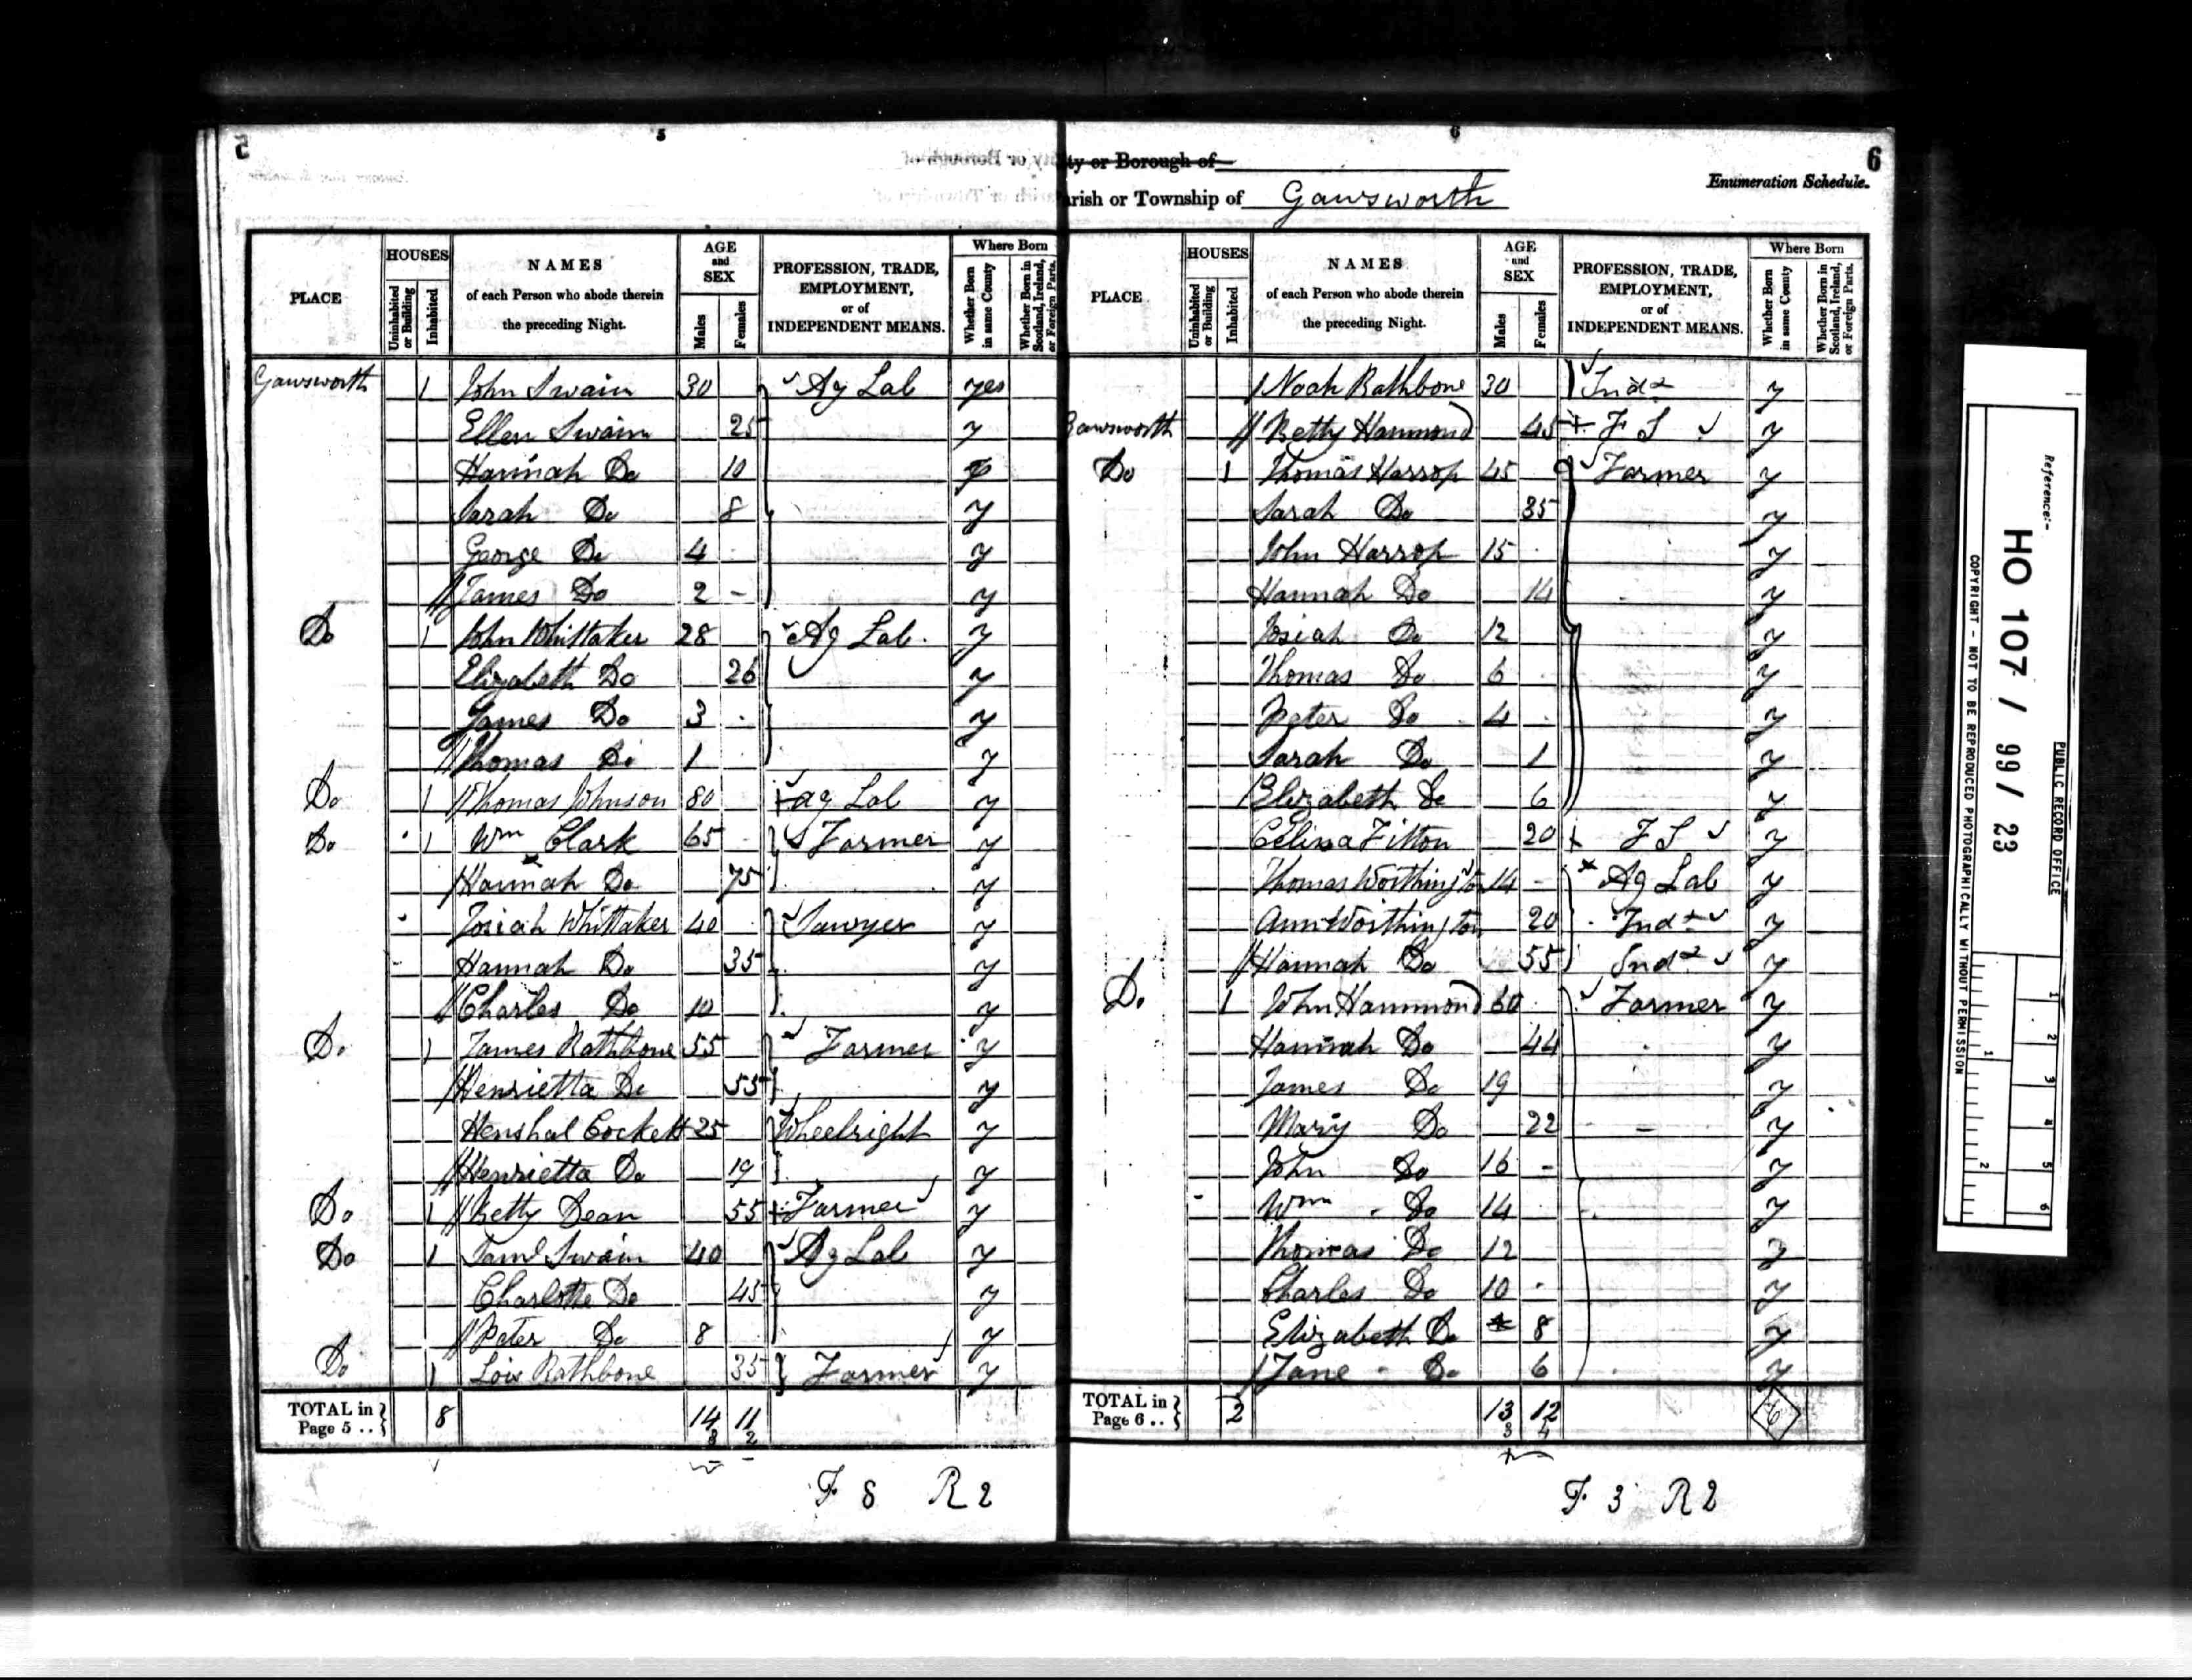 5
PLACE
HOUSES
Uninhabited or Building
Inhabited
NAMES
of each Person who abode therein
the preceding Night.
AGE
and
SEX
Males
Females
PROFESSION, TRADE,
EMPLOYMENT,
or of
INDEPENDENT MEANS.
Where Born
Whether Born in same County
Whether Born in Scotland, Ireland, or Foreign Parts.
Gawsworth 1 John Swain 30 Ag Lab yes
Ellen Swain 25 y
Hannah Do 10 y
Sarah Do 8 y
George Do 4 y
James Do 2 - y
Do 1 John Whittaker 28 Ag Lab y
Elizabeth Do 26 y
James Do 3 y
Thomas Do 1 y
Do 1 Thomas Johnson 80 ag Lab y
Do 1 Wm Clark 65 Farmer y
Hannah Do 75 y
Josiah Whittaker 40 Sawyer y
Hannah Do 35 y
Charles Do 10 y
Do 1 James Rathbone 55 Farmer y
Henrietta Do 55 y
Henshal Cockett 25 Wheelright y
Henrietta Do 19 y
Do 1 Betty Dean 55 Farmer y
Do 1 Saml Swain 40 Ag Lab y
Charlotte Do 45 y
Peter Do 8 y
Do 1 Lois Rathbone 35 Farmer y
TOTAL in Page 5 .. 8 14 11
3 2
F 8 R 2
6
6
ty or Borough of
arish or Township of Gawsworth
Enumeration Schedule.
PLACE
HOUSES
Uninhabited or Building
Inhabited
NAMES
of each Person who abode therein
the preceding Night.
AGE
and
SEX
Males
Females
PROFESSION, TRADE,
EMPLOYMENT,
or of
INDEPENDENT MEANS.
Where Born
Whether Born in same County
Whether Born in Scotland, Ireland, or Foreign Parts.
Noah Rathbone 30 Ind y
Gawsworth Betty Hammond 45 F S y
Do 1 Thomas Harrop 45 Farmer y
Sarah Do 35 y
John Harrop 15 y
Hannah Do 14 y
Josiah Do 12 y
Thomas Do 6 y
Peter Do 4 y
Sarah Do 1 y
Elizabeth Do 6 y
Celina Fitton 20 F S y
Thomas Worthington 14 - Ag Lab y
Ann Worthington 20 Ind y
Hannah Do 55 Ind y
Do 1 John Hammond 60 Farmer y
Hannah Do 44 y
James Do 19 y
Mary Do 22 - y
John Do 16 - y
Wm Do 14 y
Thomas Do 12 y
Charles Do 10 y
Elizabeth Do 8 y
Jane Do 6 y
TOTAL in Page 6 .. 2 13 12 6
3 4
F 3 R 2
Reference:-
HO 107 / 99 / 23
PUBLIC RECORD OFFICE
COPYRIGHT - NOT TO BE REPRODUCED PHOTOGRAPHICALLY WITHOUT PERMISSION
1 2 3 4 5 6
1 2